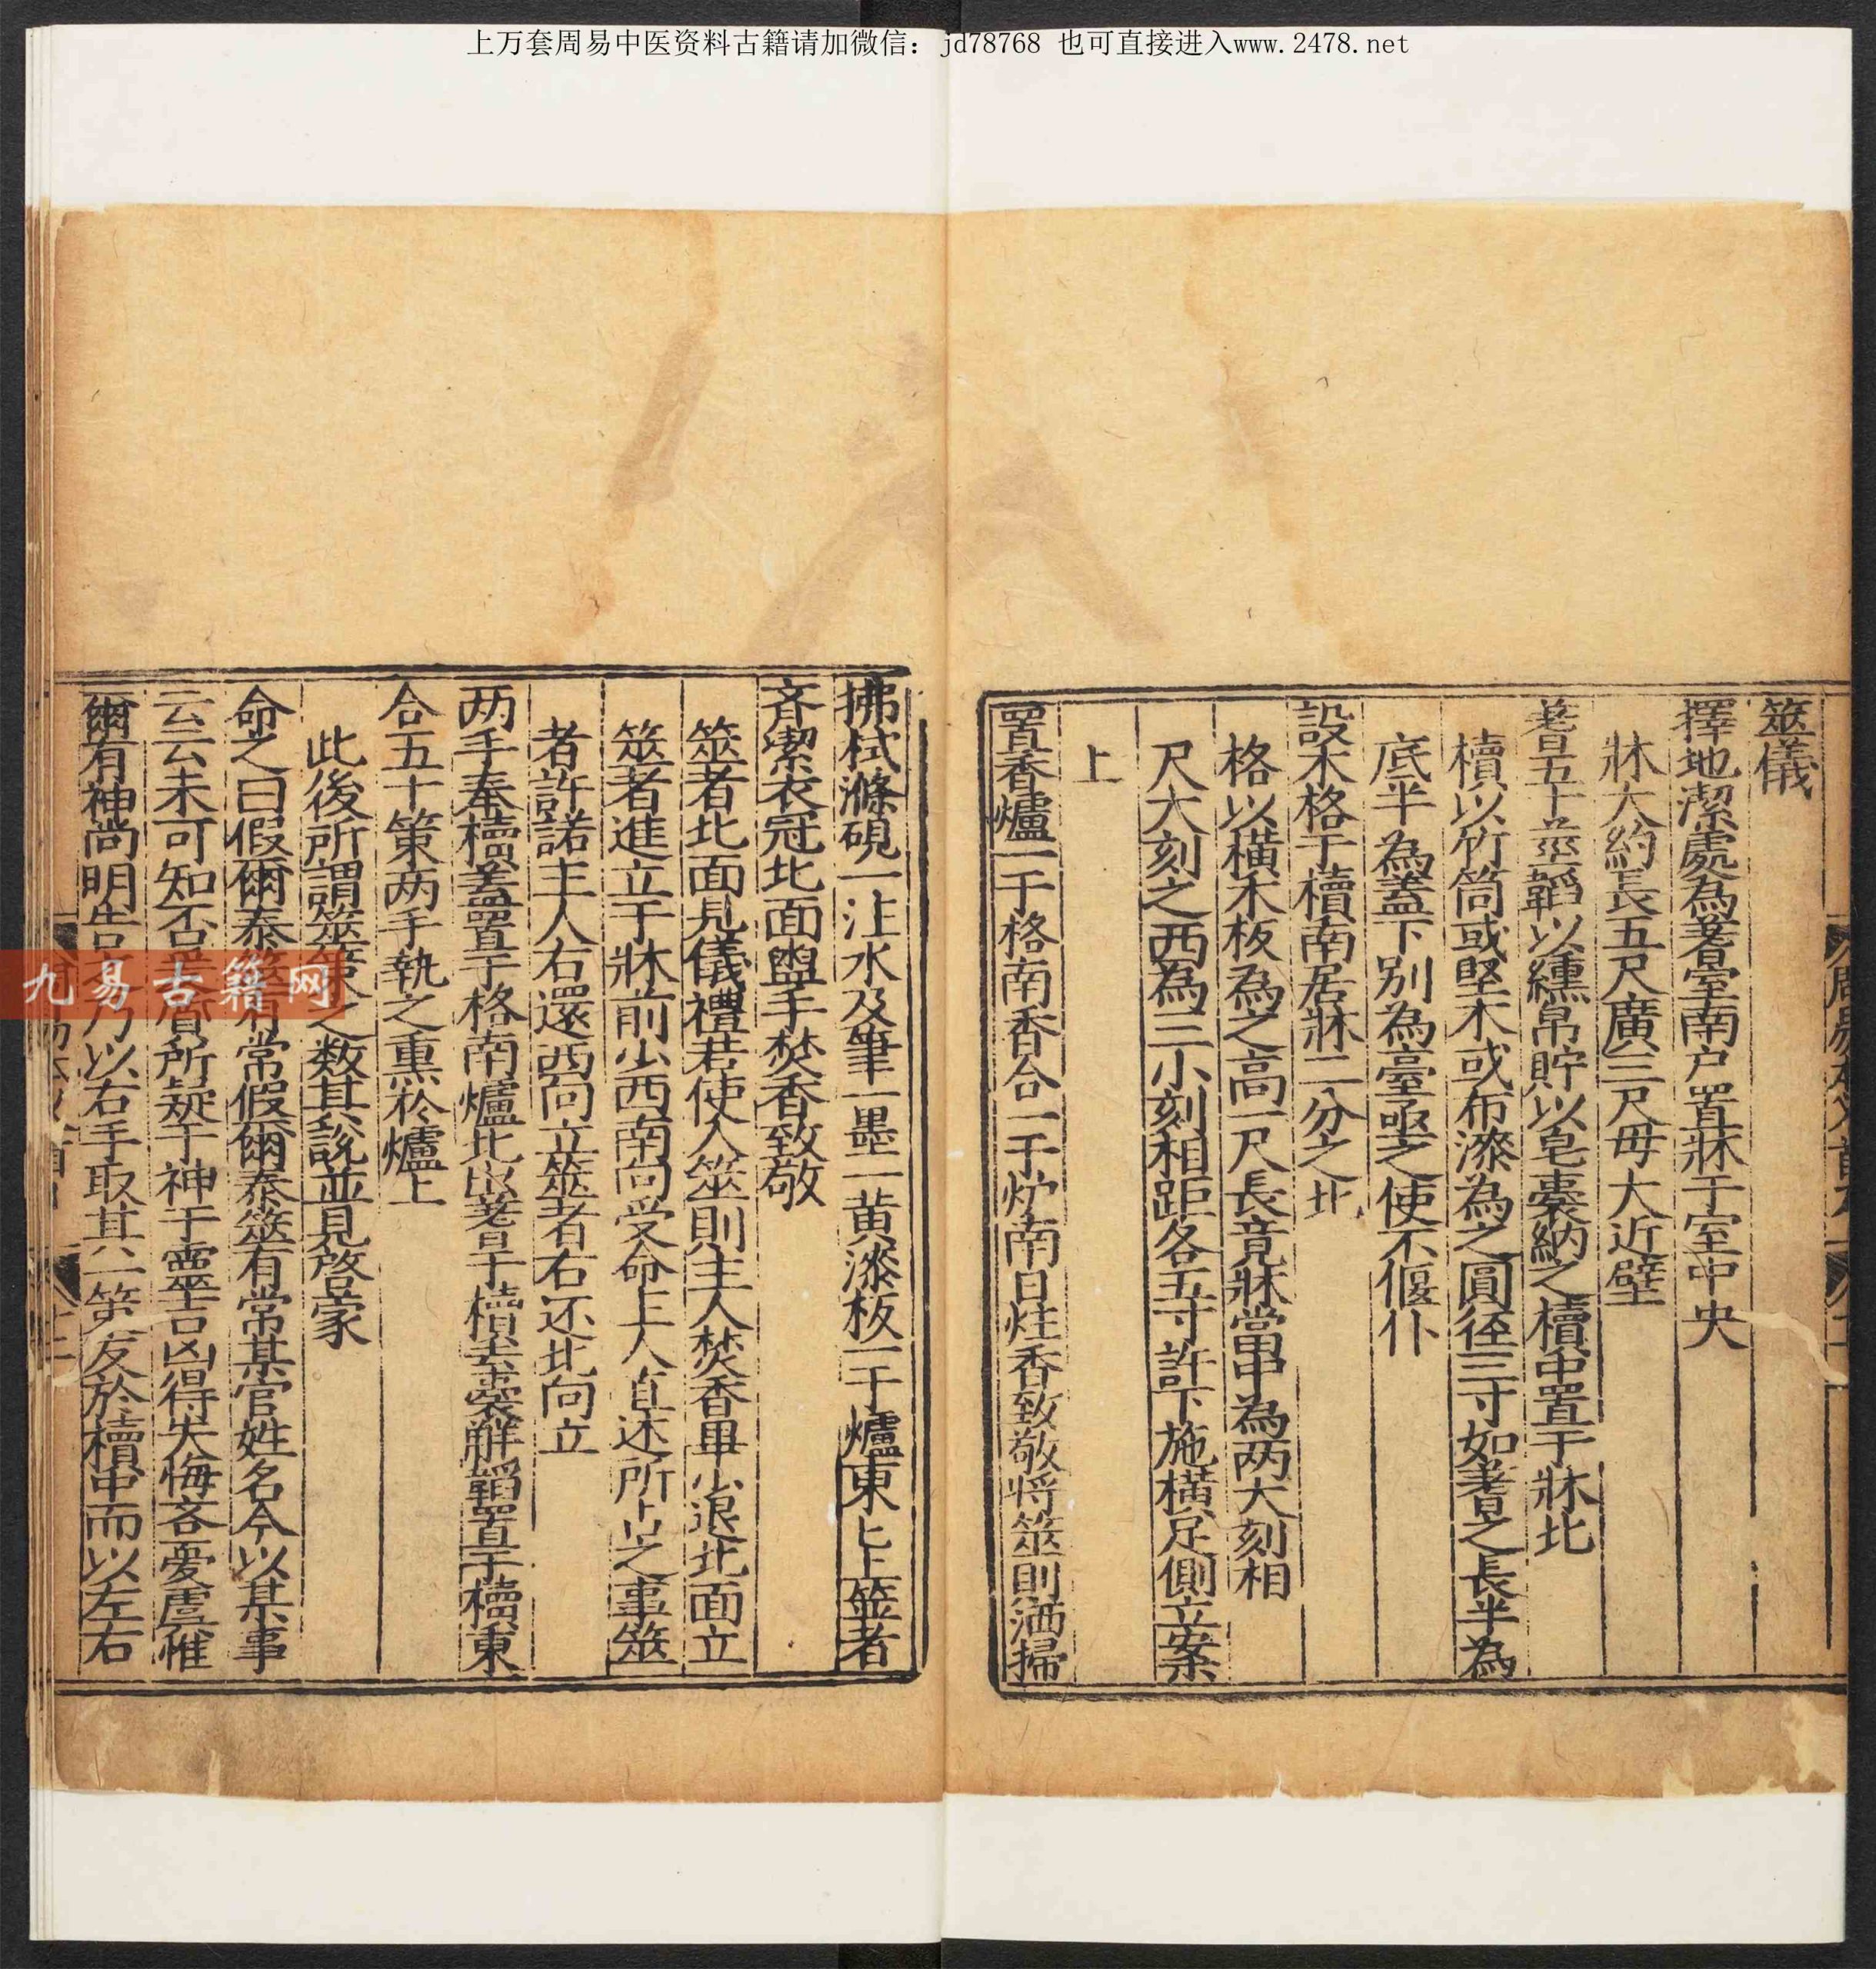 上万套周易中医资料古籍请加微信：jd78768 也可直接进入www.2478.net
筮儀
擇地潔處為蓍室南户置牀于室中央
牀大約長五尺廣三尺毋大近壁
蓍五十莖韜以纁帛貯以皂囊納之櫝中置于牀北
櫝以竹筒或堅木或布漆為之圓徑三寸如蓍之長半為
底半為蓋下別為臺凾之使不偃仆
設木格于櫝南居牀二分之北
格以橫木板為之高一尺長竟牀當中為两大刻相
尺大刻之西為三小刻相距各五寸許下施橫足側立案
上
置香爐一于格南香合一于炉南日炷香致敬将筮則洒掃
拂拭滌硯一注水及筆一墨一黄漆板一于爐東上筮者
斉潔衣冠北面盥手焚香致敬
筮者北面見儀禮若使人筮則主人焚香畢少退北面立
筮者進立于牀前少西南向受命主人直述所占之事筮
者許諾主人右還西向立筮者右还北向立
两手奉櫝蓋置于格南爐北出蓍于櫝去囊解韜置于櫝東
合五十策两手執之熏於爐上
此後所謂筮策之数其説並見啓蒙
命之曰假爾泰筮有常假爾泰筮有常某官姓名今以某事
云云未可知否所疑于神于靈吉凶得失悔吝憂虞惟
爾有神尚明告之乃以右手取其一策反於櫝中而以左右
九易古籍网